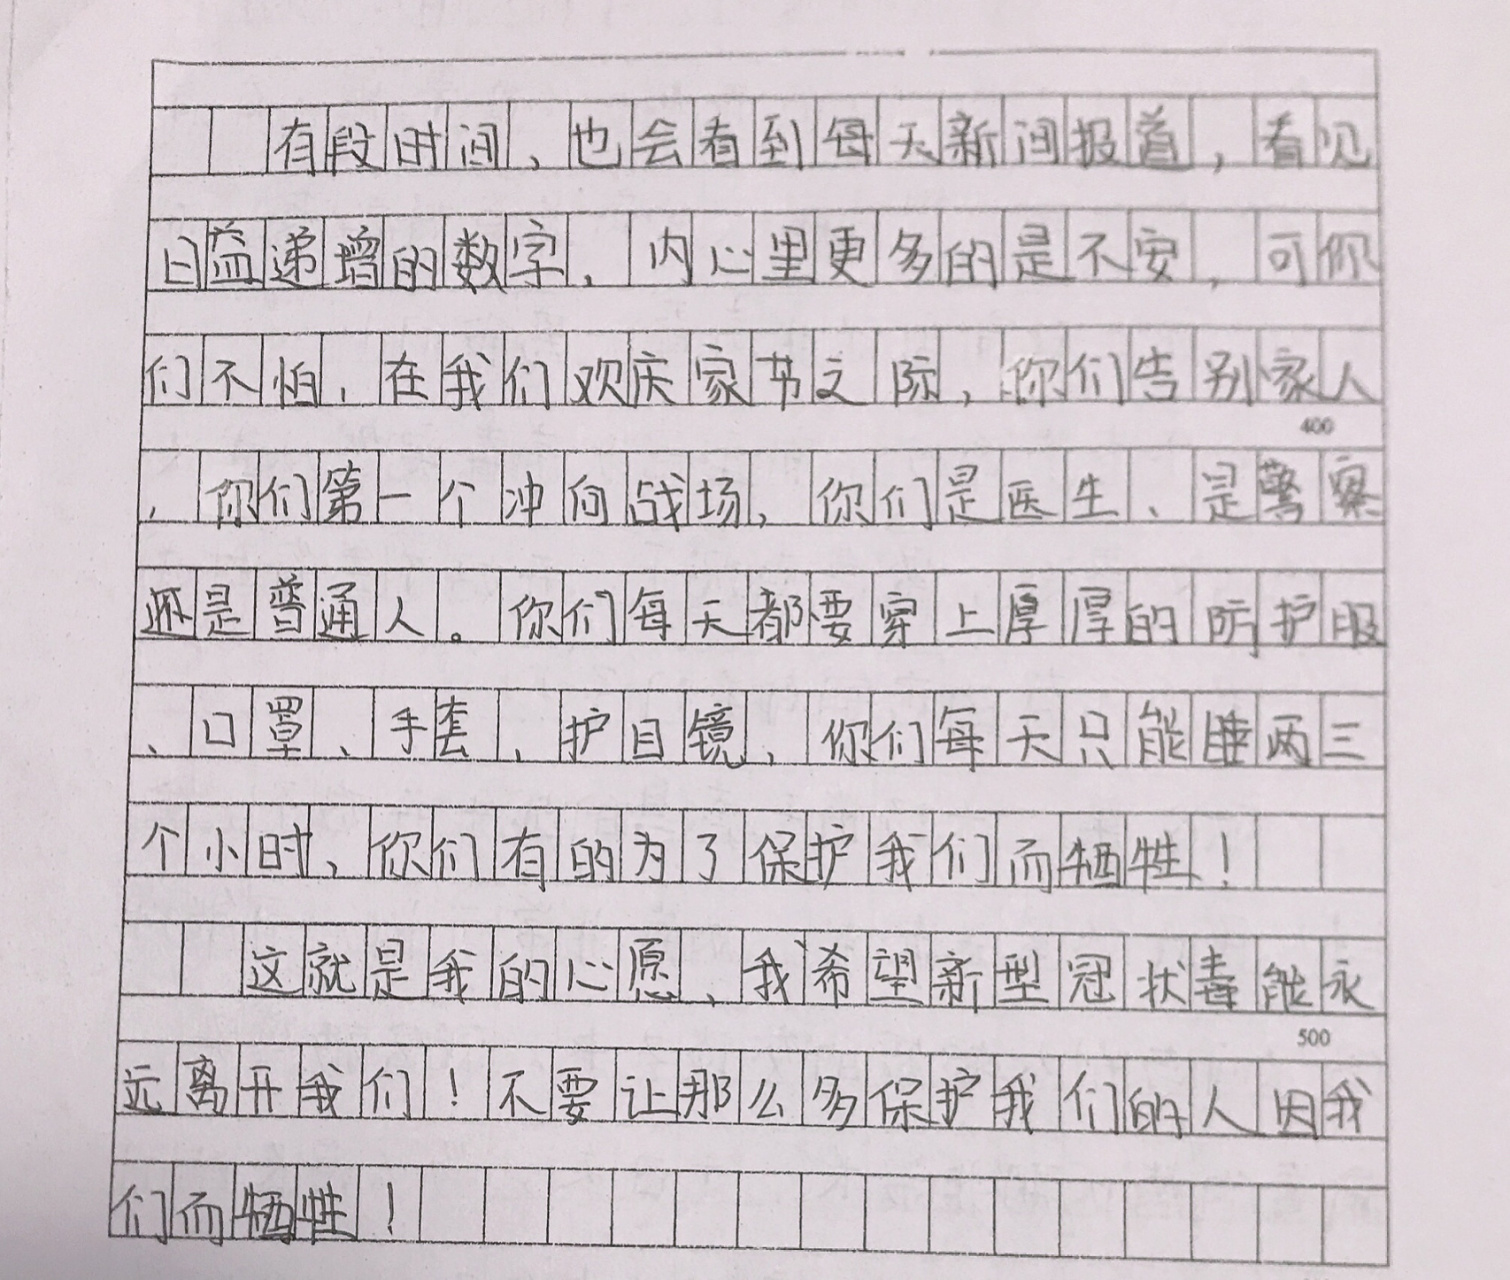 有段时间，也会看到每天新闻报道，看见
日益递增的数字，内心里更多的是不安，可你
们不怕，在我们欢庆家节之际，你们告别家人
400
，你们第一个冲向战场，你们是医生、是警察
还是普通人。你们每天都要穿上厚厚的防护服
、口罩、手套、护目镜，你们每天只能睡两三
个小时，你们有的为了保护我们而牺牲！
这就是我的心愿，我希望新型冠状毒能永
500
远离开我们！不要让那么多保护我们的人因我
们而牺牲！